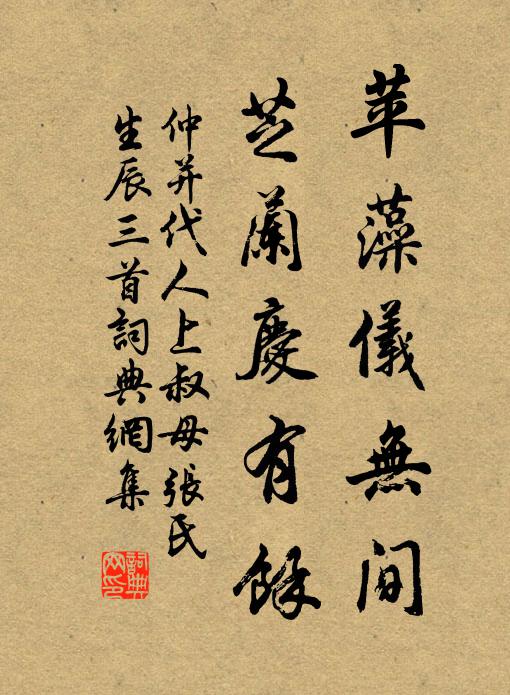 苹藻儀無間
芝蘭慶有餘
仲并代人上叔母張氏
生辰三首詞典網集
詞典
网印